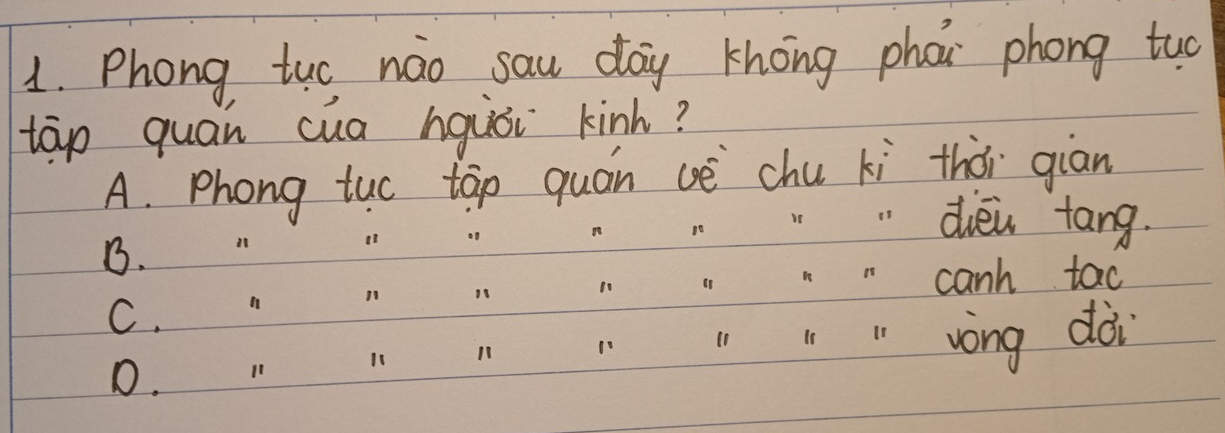 1. Phong tục nào sau đây không phải phong tục
tập quán của người kinh?
A. Phong tục tập quán về chu kì thời gian
B. " " " " " " " điếu tang.
C. " " " " " " " canh tác
D. " " " " " " " vòng đời